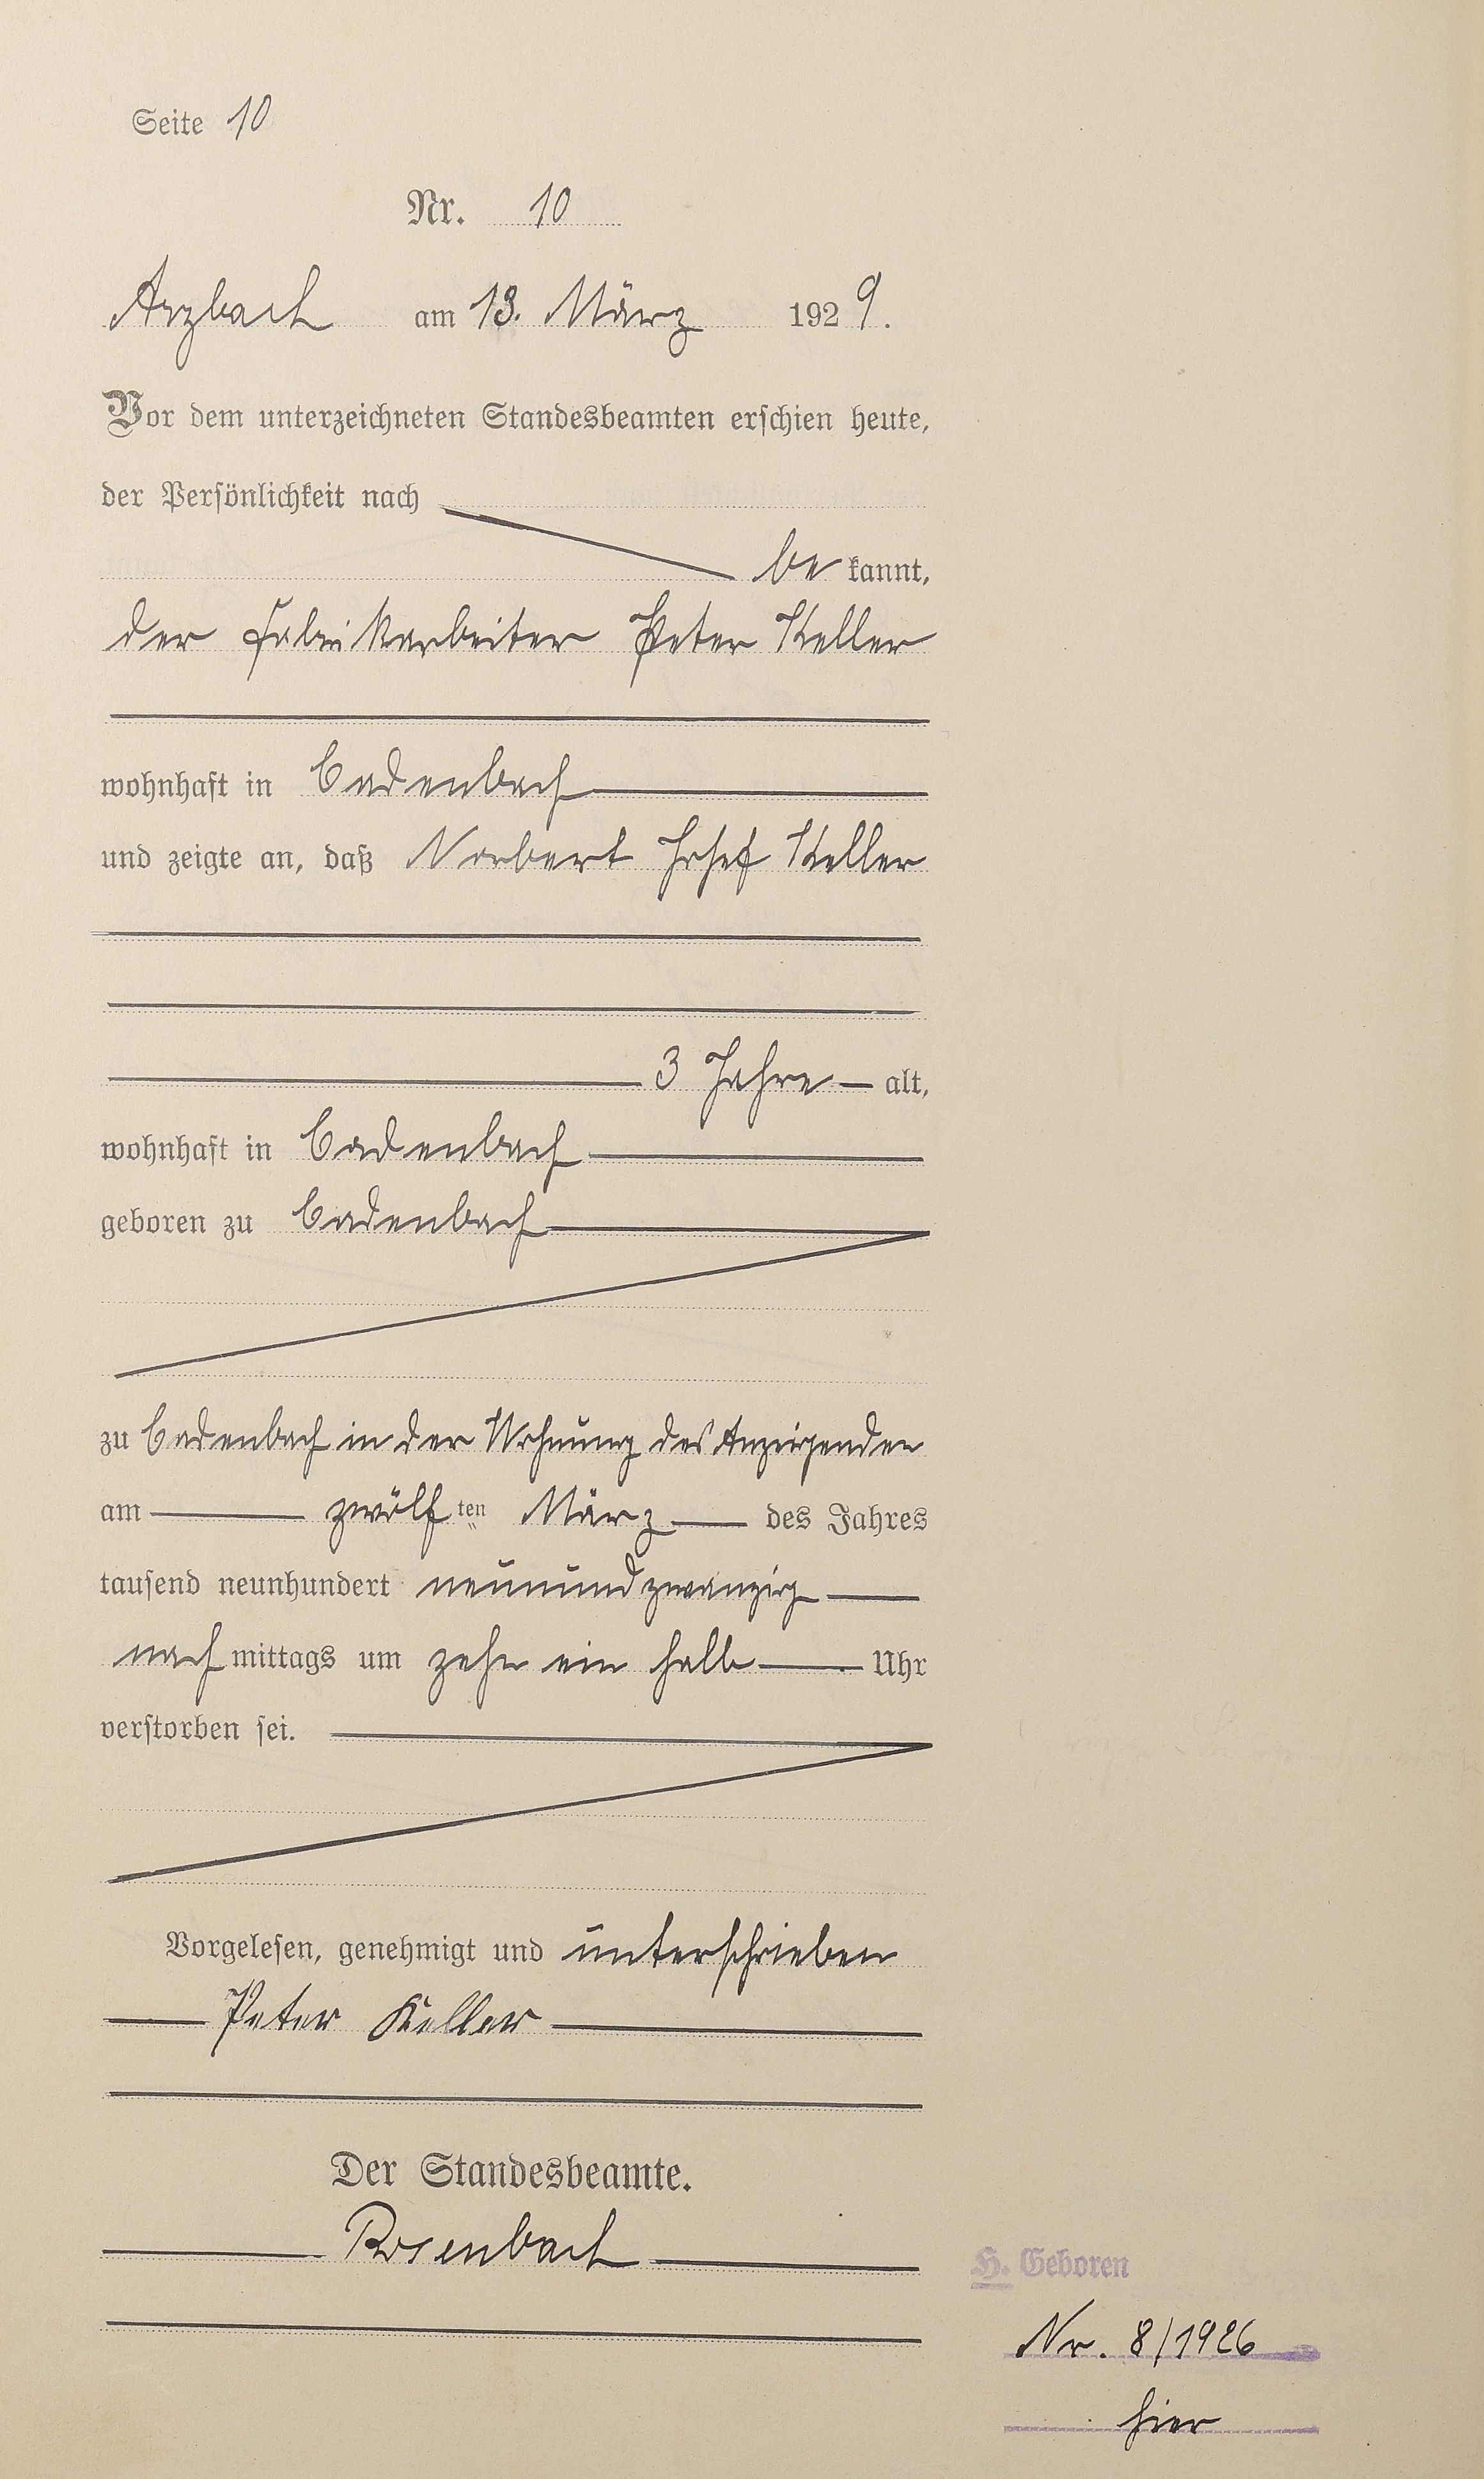 Seite 10
Nr. 10
Arzbach am 13. März 1929.
Vor dem unterzeichneten Standesbeamten erschien heute,
der Persönlichkeit nach
be kannt,
der Fabrikarbeiter Peter Keller
wohnhaft in Cadenbach
und zeigte an, daß Norbert Josef Keller
3 Jahre alt,
wohnhaft in Cadenbach
geboren zu Cadenbach
zu Cadenbach in der Wohnung des Anzeigenden
am zwölf ten März des Jahres
tausend neunhundert neunundzwanzig
nach mittags um zehn ein halb Uhr
verstorben sei.
Vorgelesen, genehmigt und unterschrieben
Peter Keller
Der Standesbeamte.
Rosenbach
H. Geboren
Nr. 8/1926
hier